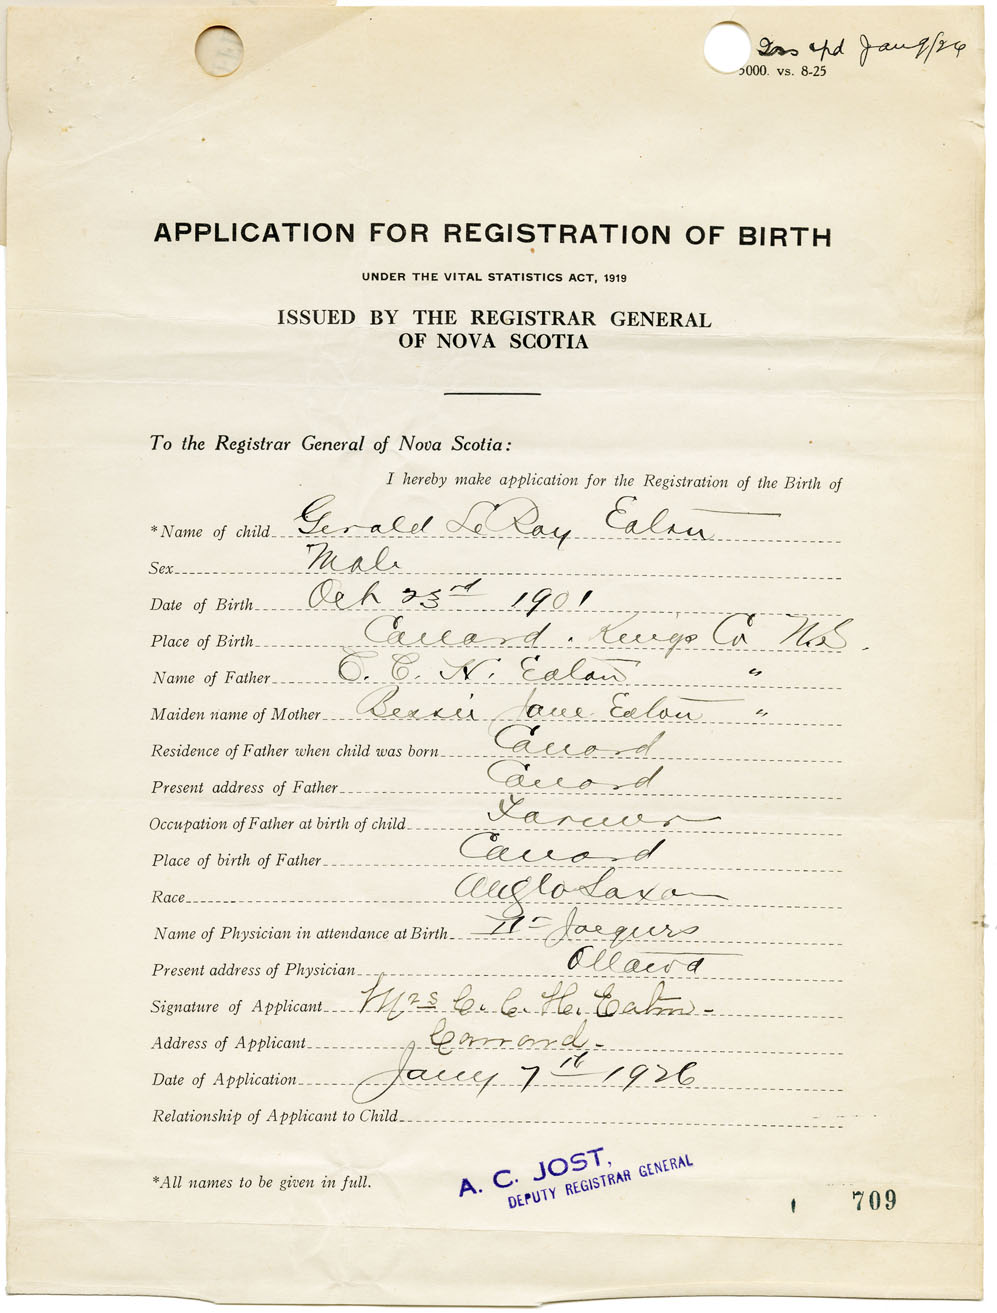 Jan 9/26
5000. vs. 8-25
APPLICATION FOR REGISTRATION OF BIRTH
UNDER THE VITAL STATISTICS ACT, 1919
ISSUED BY THE REGISTRAR GENERAL
OF NOVA SCOTIA
To the Registrar General of Nova Scotia:
I hereby make application for the Registration of the Birth of
*Name of child Gerald LeRoy Eaton
Sex Male
Date of Birth Oct 23rd 1901
Place of Birth Canard. Kings Co N.S.
Name of Father C. C. H. Eaton "
Maiden name of Mother Bessie Jane Eaton "
Residence of Father when child was born Canard
Present address of Father Canard
Occupation of Father at birth of child Farmer
Place of birth of Father Canard
Race Anglo Saxon
Name of Physician in attendance at Birth Jacques
Present address of Physician Ottawa
Signature of Applicant Mrs C. C. H. Eaton-
Address of Applicant Canard-
Date of Application Jany 7th 1926
Relationship of Applicant to Child
*All names to be given in full.
A. C. JOST,
DEPUTY REGISTRAR GENERAL
709